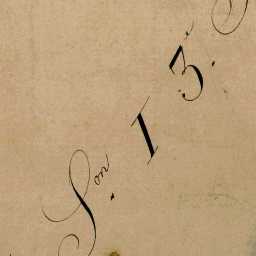 Son. 13.